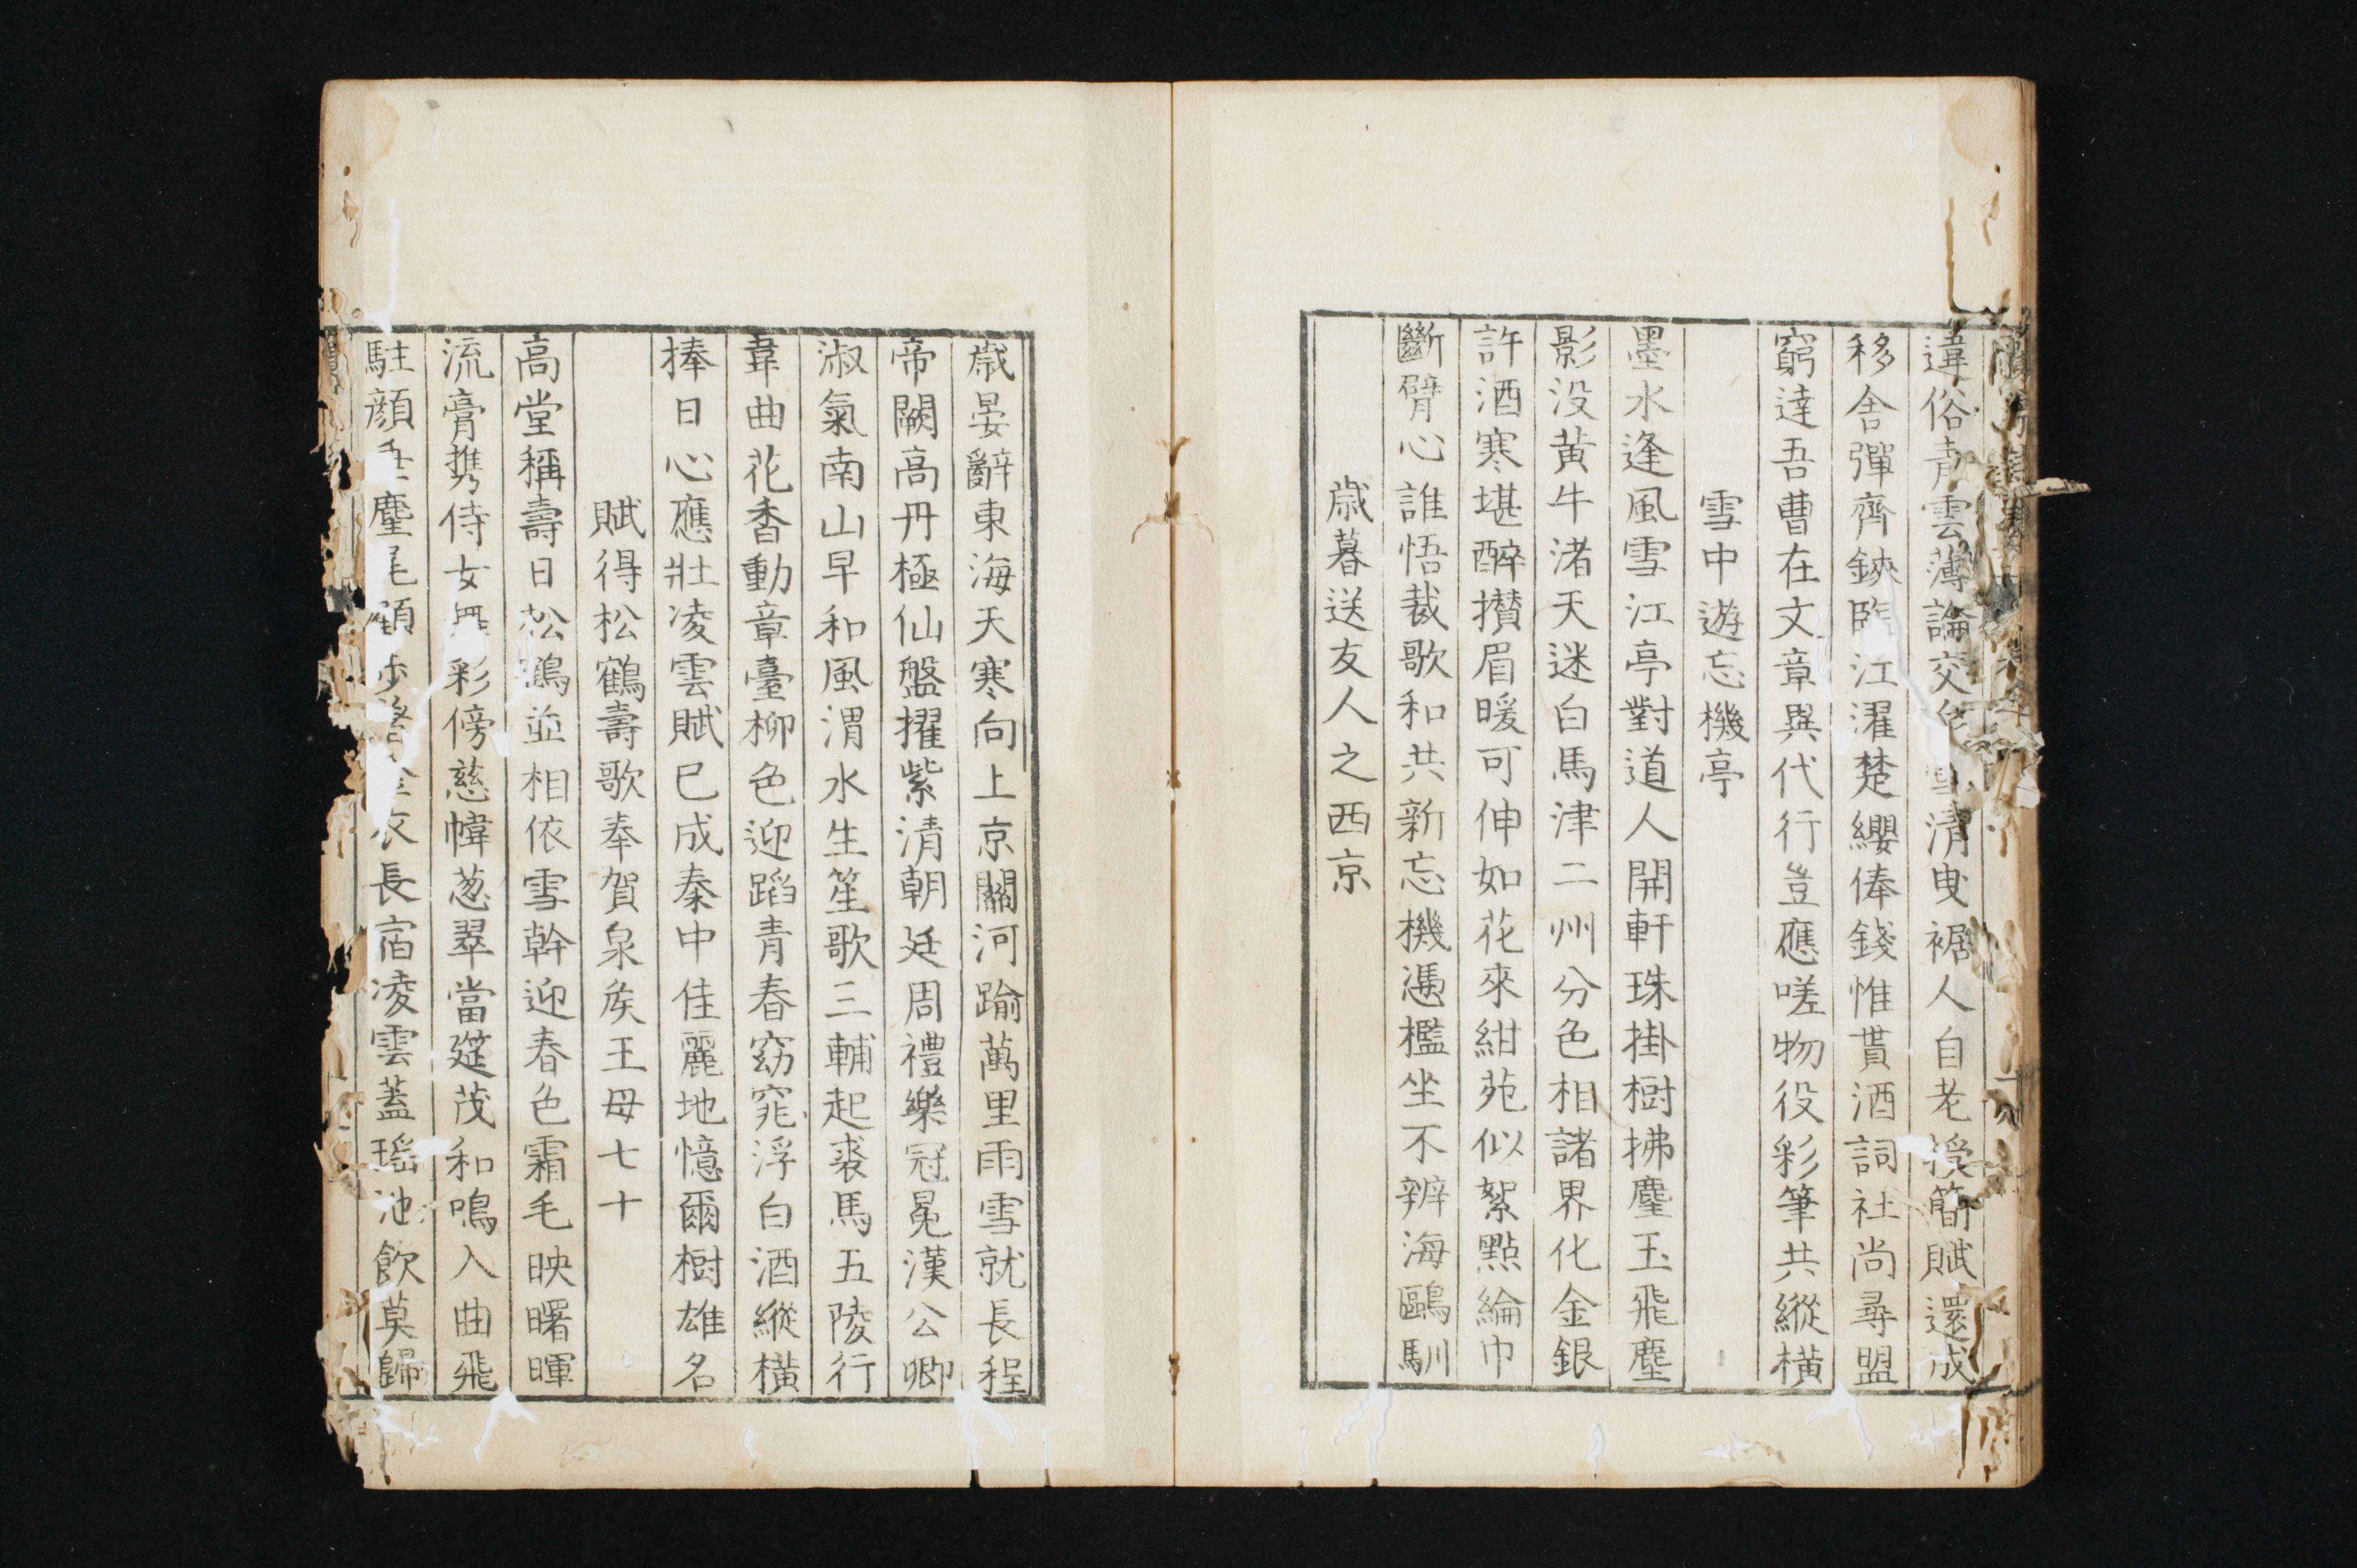 違俗青雲薄論交白雪清曳裾人自老授簡賦還成
移舍彈齊鋏臨江濯楚纓俸錢惟貰酒詞社尚尋盟
窮達吾曹在文章異代行豈應嗟物役彩筆共縱橫
雪中遊忘機亭
墨水逢風雪江亭對道人開軒珠掛樹拂麈玉飛塵
影没黄牛渚天迷白馬津二州分色相諸界化金銀
許酒寒堪醉攅眉暖可伸如花來紺苑似絮點綸巾
斷臂心誰悟裁歌和共新忘機憑檻坐不辨海鷗馴
歳暮送友人之西京
歳晏辭東海天寒向上京關河踰萬里雨雪就長程
帝闕高丹極仙盤擢紫清朝廷周禮樂冠冕漢公卿
淑氣南山早和風渭水生笙歌三輔起裘馬五陵行
韋曲花香動章臺柳色迎蹈青春窈窕浮白酒縱横
捧日心應壯凌雲賦已成秦中佳麗地憶爾樹雄名
賦得松鶴壽歌奉賀泉矦王母七十
高堂稱壽日松鶴並相依雪幹迎春色霜毛映曙暉
流膏携侍女舞彩傍慈幃葱翠當筵茂和鳴入曲飛
駐顔麈尾顧步衣長宿凌雲蓋瑤池飲莫歸